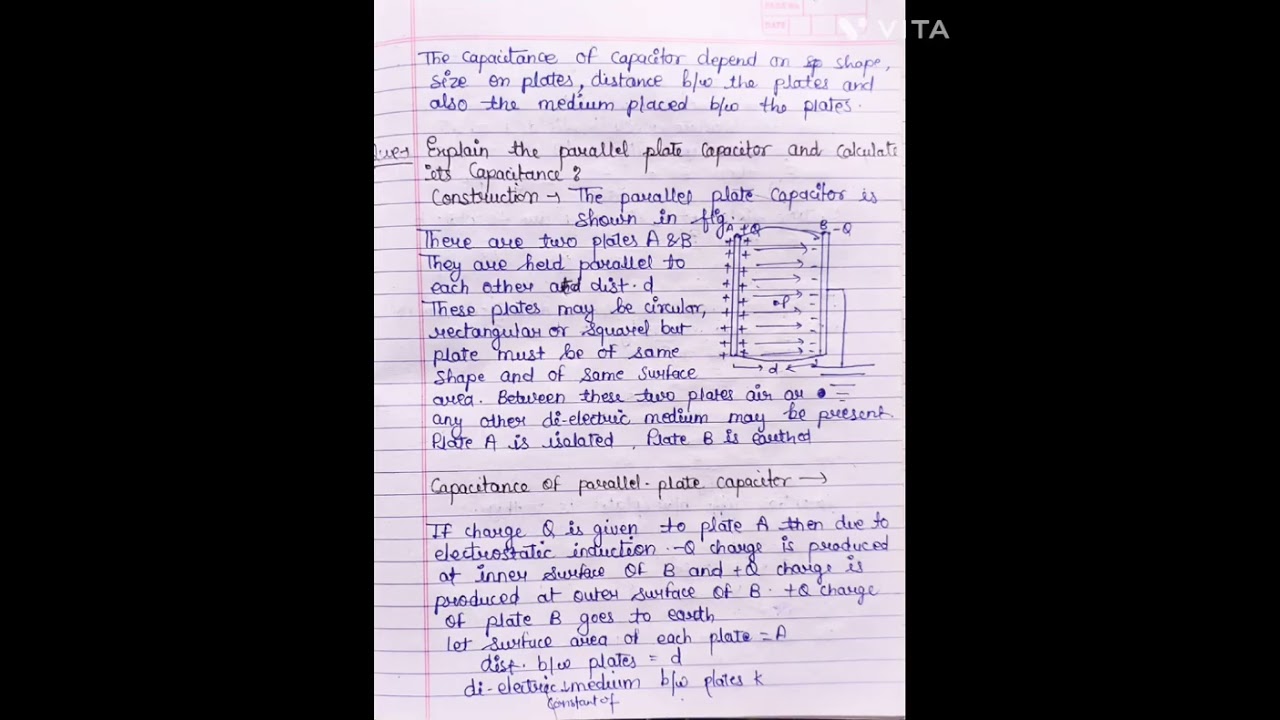 PAGE NO.
DATE
VITA
The capacitance of capacitor depend on sp shape,
size on plates, distance b/w the plates and
also the medium placed b/w the plates.
Que→ Explain the parallel plate capacitor and calculate
its Capacitance?
Construction → The parallel plate capacitor is
shown in fig.
A +Q B -Q
There are two plates A & B
They are held parallel to
each other at dist. d
These plates may be circular,
rectangular or squarel but
plate must be of same
shape and of same surface
.P
d
area. Between these two plates air or
any other di-electric medium may be present.
Plate A is isolated, Plate B is earthed
Capacitance of parallel-plate capacitor →
If charge Q is given to plate A then due to
electrostatic induction -Q charge is produced
at inner surface of B and +Q charge is
produced at outer surface of B. +Q charge
of plate B goes to earth
let surface area of each plate = A
dist. b/w plates = d
di-electric medium b/w plates k
constant of